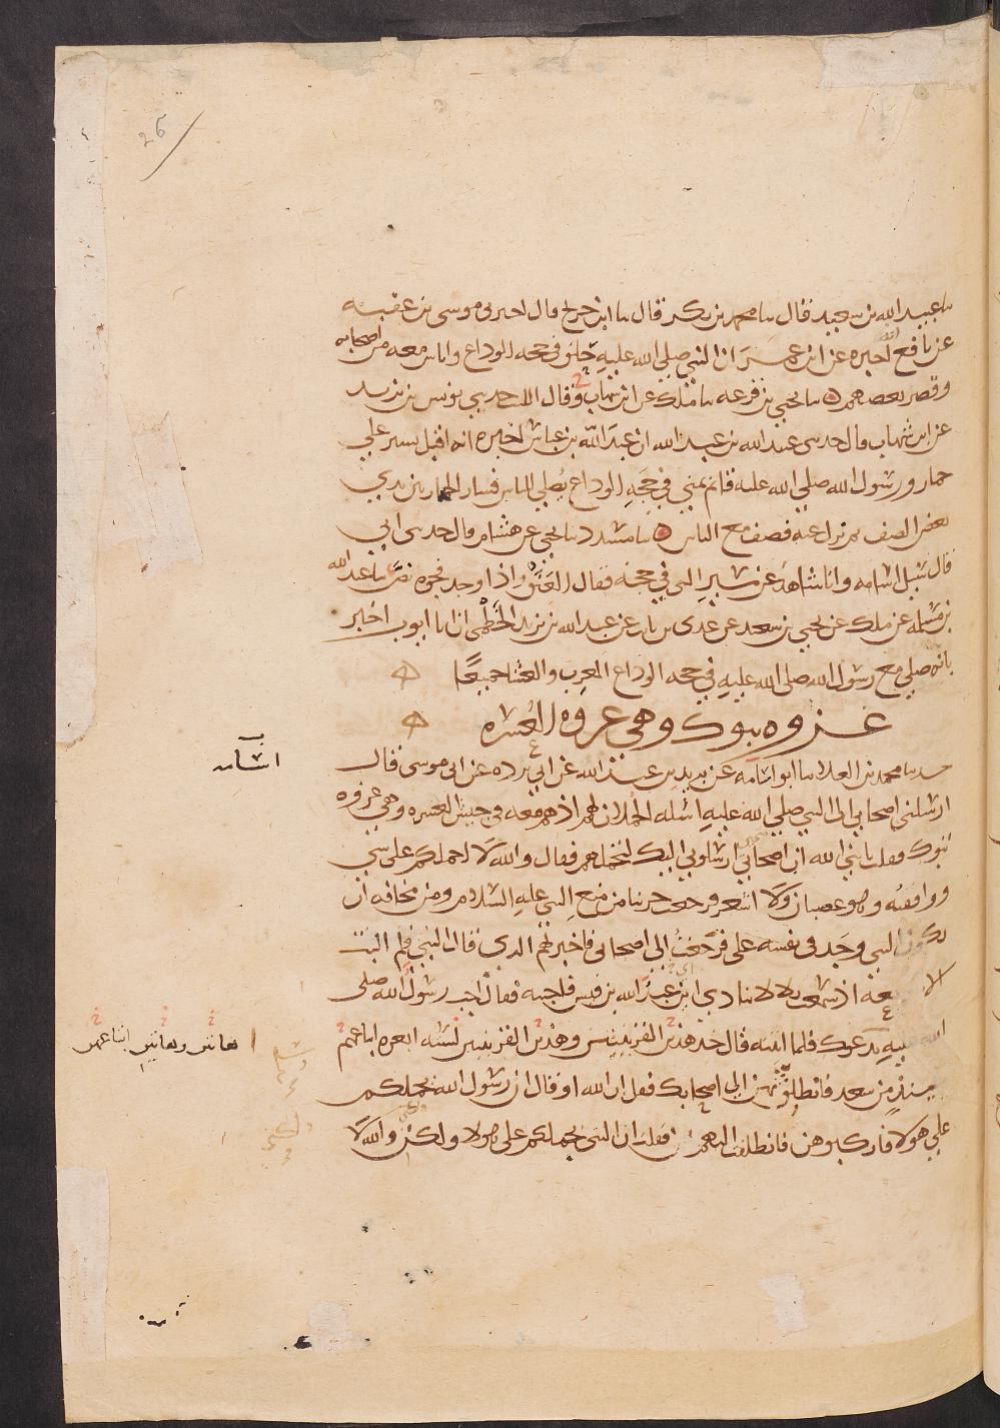 26
نا عبيد الله بن سعيد قال نا محمد بن بكر قال نا ابن جريج قال اخبرني موسى بن عقبه
عن نافع اخبره عن ابن عمر ان النبي صلى الله عليه حلق في حجه الوداع واناس معه من اصحابه
وقصر بعضهم نا يحيى بن قزعه نا ملك عن ابن شهاب وقال الليث حدثني يونس بن يزيد
عن ابن شهاب قال حدثني عبيد الله بن عبد الله ان عبد الله بن عباس اخبره انه اقبل يسير على
حمار ورسول الله صلى الله عليه قائم بمنى في حجه الوداع يصلي للناس فسار الحمار بين يدي
بعض الصف ثم نزل عنه فصف مع الناس نا مسدد نا يحيى عن هشام قال حدثني ابي
قال سئل اسامه وانا شاهد عن سير النبي في حجته فقال العنق واذا وجد فجوه نص نا عبد الله
بن مسلمه عن ملك عن يحيى بن سعيد عن عدي بن ثابت عن عبد الله بن يزيد الخطمي ان ابا ايوب اخبره
انه صلى مع رسول الله صلى الله عليه في حجه الوداع المغرب والعشا جميعا
غزوه تبوك وهي غزوه العسره
حدثنا محمد بن العلا نا ابو اسامه عن بريد بن عبد الله عن ابي برده عن ابي موسى قال
اسامه
ارسلني اصحابي الى النبي صلى الله عليه اسله الحملان لهم اذ هم معه في جيش العسره وهي غزوه
تبوك فقلت يا نبي الله ان اصحابي ارسلوني اليك لتحملهم فقال والله لا احملكم على شي
ووافقته وهو غضبان ولا اشعر ورجعت حزينا من منع النبي عليه السلام ومن مخافه ان
يكون النبي وجد في نفسه علي فرجعت الى اصحابي فاخبرتهم الذي قال النبي فلم البث
الا سويعة اذ سمعت بلالا ينادي اين عبد الله بن قيس فاجبته فقال اجب رسول الله صلى
الله عليه يدعوك فلما اتيته قال خذ هذين القرينين وهذين القرينين لسته ابعره ابتاعهم
هاتين وهاتين ابتاعهن
حينئذ من سعد فانطلق بهن الى اصحابك فقل ان الله او قال ان رسول الله يحملكم
على هولا فاركبوهن فانطلقت اليهم فقلت ان النبي يحملكم على هولا ولكني والله لا